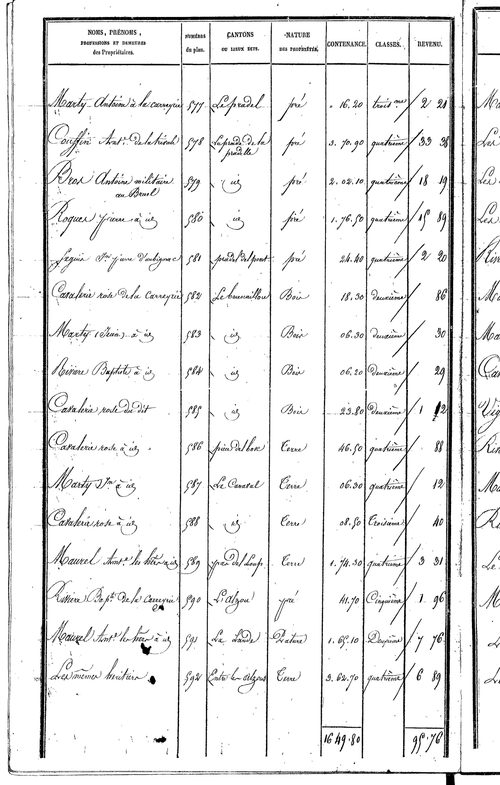 NOMS, PRÉNOMS, PROFESSIONS ET DEMEURES des Propriétaires. NUMÉROS du plan. CANTONS OU LIEUX DITS. NATURE DES PROPRIÉTÉS. CONTENANCE. CLASSES. REVENU.
Marty Antoine à la carreyrie 577 Le pradel pré . 16. 20 troisme 2 21
Couffin Ant. de 578 La prade de la pradelle pré 3. 70. 90 quatrième 33 38
Bros Antoine militaire au Bruel 579 id pré 2. 02. 10 quatrième 18 19
Roques pierre à id 580 id pré 1. 76. 50 quatrième 15 89
pierre d'aubignac 581 prades del pont pré 24. 40 quatrième 2 20
Cavalerie rose de la Carreyrie 582 Bois 18. 30 deuxième 86
Marty (Jean) à id 583 id Bois 06. 30 deuxième 30
Rivière Baptiste à id 584 id Bois 06. 20 Deuxième 29
Cavalerie rose du dit 585 id Bois 23. 80 Deuxième 1 12
Cavalerie rose à id 586 Terre 46. 50 quatrième 88
Marty à id 587 Le Cansal Terre 06. 30 quatrième 12
Cavalerie rose à id 588 id Terre 08. 50 Troisième 40
Maurel Ant. les hers à id 589 prat del Loup Terre 1. 74. 30 quatrième 3 31
Rivière Bapte de la Carreyrie 590 L'alzou pré 41. 70 Cinquième 1 96
Maurel Ant. les hers à id 591 La Lande Pature 1. 65. 10 Deuxième 7 76
Les mêmes héritiers 592 Entre les alzous Terre 3. 62. 70 quatrième 6 89
1649. 80 95. 76